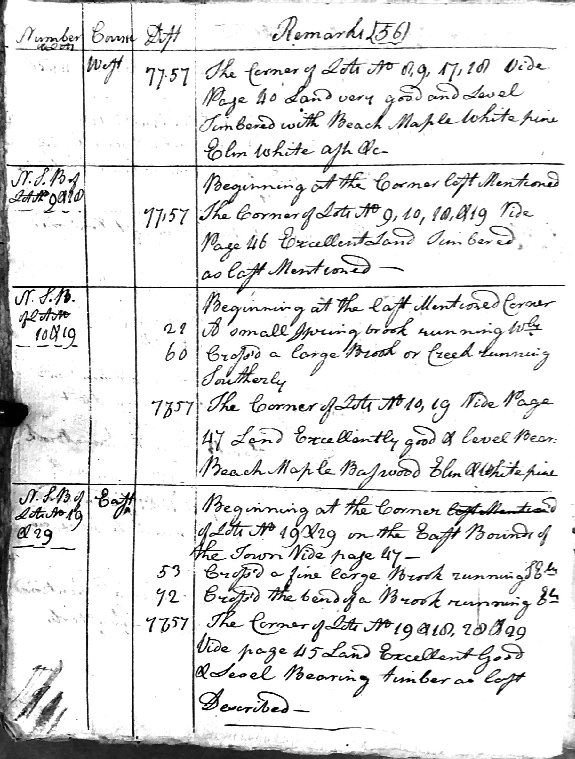 Number Course Dist Remarks [56]
West 77.57 The Corner of Lots No 8, 9, 17, 18 Vide
Page 40 Land very good and Level
Timbered with Beach Maple White pine
Elm White ash &c-
N. S. B of Beginning at the Corner last Mentioned
Lots No 9 & 18 77,57 The Corner of Lots No 9, 10, 18, & 19 Vide
Page 46 Excellent Land Timbered
as last Mentioned —
N. S. B. Beginning at the last Mentioned Corner
of Lots No 21 A small Spring brook running Wly
10 & 19 60 Cross'd a large Brook or Creek running
Southerly
77,57 The Corner of Lots No 10, 19 Vide Page
47 Land Excellently good & level Bear:
Beach Maple Basswood Elm & White pine
N. S. B of East Beginning at the Corner last Mentioned
Lots No 19 of Lots No 19 & 29 on the East Bounds of
& 29 the Town Vide page 47 —
53 Cross'd a fine large Brook running
72 Cross'd the bend of a Brook running
77,57 The Corner of Lots No 19 & 18, 28 & 29
Vide page 45 Land Excellent Good
& Level Bearing timber as last
Described —